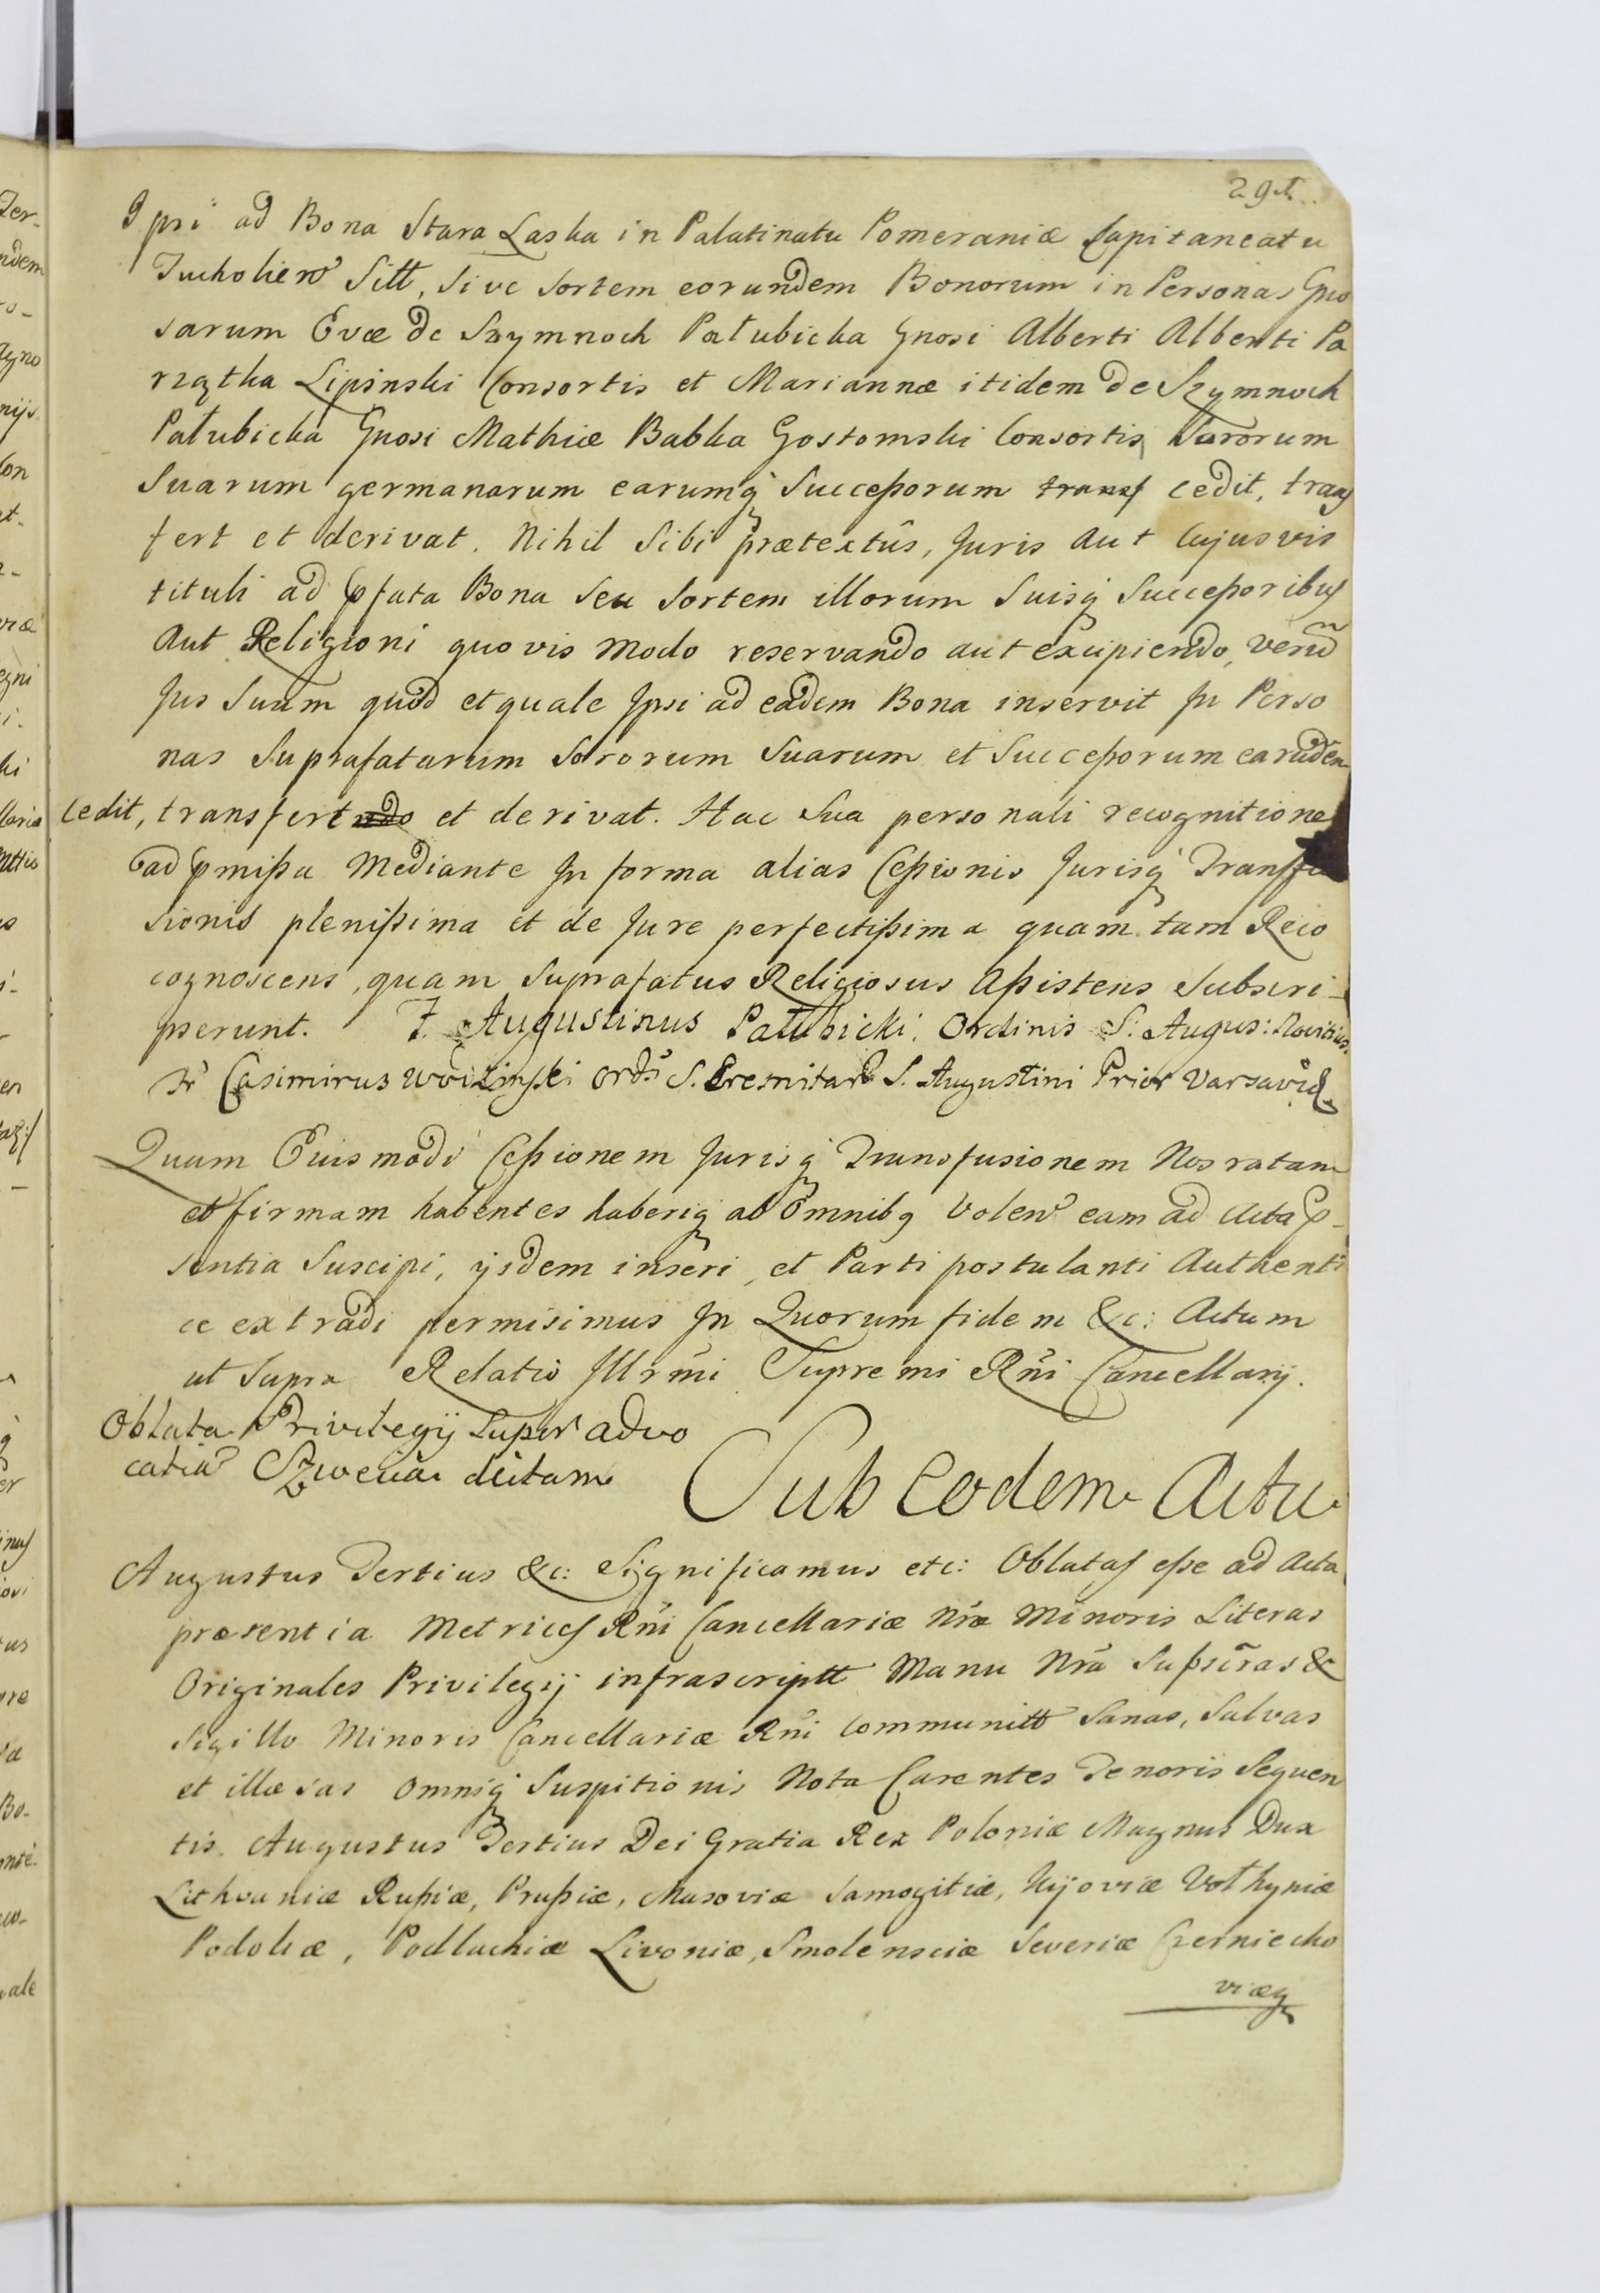 Ipsi ad Bona Stara Laska in Palatinatu Pomeraniæ Capitaneatu
Tucholien Sitt, Sive Sortem eorundem Bonorum in Personas Gno
sarum Evæ de Szymnoch Pałubicka Gnosi Alberti Alberti Pa
rzątka Lipinski Consortis et Mariannæ itidem de Szymnoch
Pałubicka Gnosi Mathiæ Babka Gostomski Consortis, Sororum
Suarum germanarum earumq Successorum transf cedit, trans
fert et derivat. Nihil Sibi prætextûs, Juris Aut Cujusvis
tituli ad pfata Bona Seu Sortem illorum Suisq Successoribus
Aut Religioni quovis Modo reservando aut excipiendo, Verũ
Jus Suum quod et quale Ipsi ad eadem Bona inservit In Perso
nas Suprafatarum Sororum Suarum et Successorum earũdem
Cedit, transfert ndo et derivat. Hac Sua personali recognitione
ad pmissa Mediante In forma alias Cessionis Jurisq Transfu
sionis plenissima et de Jure perfectissima quam tam Reco
cognoscens, quam Suprafatus Religiosus Assistens Subscri-
pserunt. F. Augustinus Pałubicki Ordinis S. Augus: Novitius.
Fr Casimirus Wolinski Ordis S. Eremitar S. Augustini Prior Varsaviæ
Quam Ejusmodi Cessionem Jurisq Transfusionem Nos ratam
et firmam habentes haberiq ab Omnibq Volen eam ad Acta p-
sentia Suscipi, ijsdem inseri, et Parti postulanti Authenti
ce extradi permisimus In Quorum fidem &c: Actum
ut Supra Relatio Illrmi Supremi Rñi Cancellarij.
Oblata Privilegij Super advo
catiã Szwecia dictam
Sub Eodem Actu
Augustus Tertius &c: Significamus etc: Oblatas esse ad Acta
præsentia Metrices Rñi Cancellariæ Nræ Minoris Literas
Originales Privilegij infrascriptt Manu Nrã Subscras &
Sigillo Minoris Cancellariæ Rñi Communitt Sanas, Salvas
et illæsas Omniq Suspitionis Nota Carentes Tenoris Sequen
tis. Augustus Tertius Dei Gratia Rex Poloniæ Magnus Dux
Lithvaniæ Russiæ, Prussiæ, Masoviæ Samogitiæ, Kijoviæ Vołhyniæ
Podoliæ, Podlachiæ Livoniæ, Smolensciæ Severiæ Czerniecho
viæq